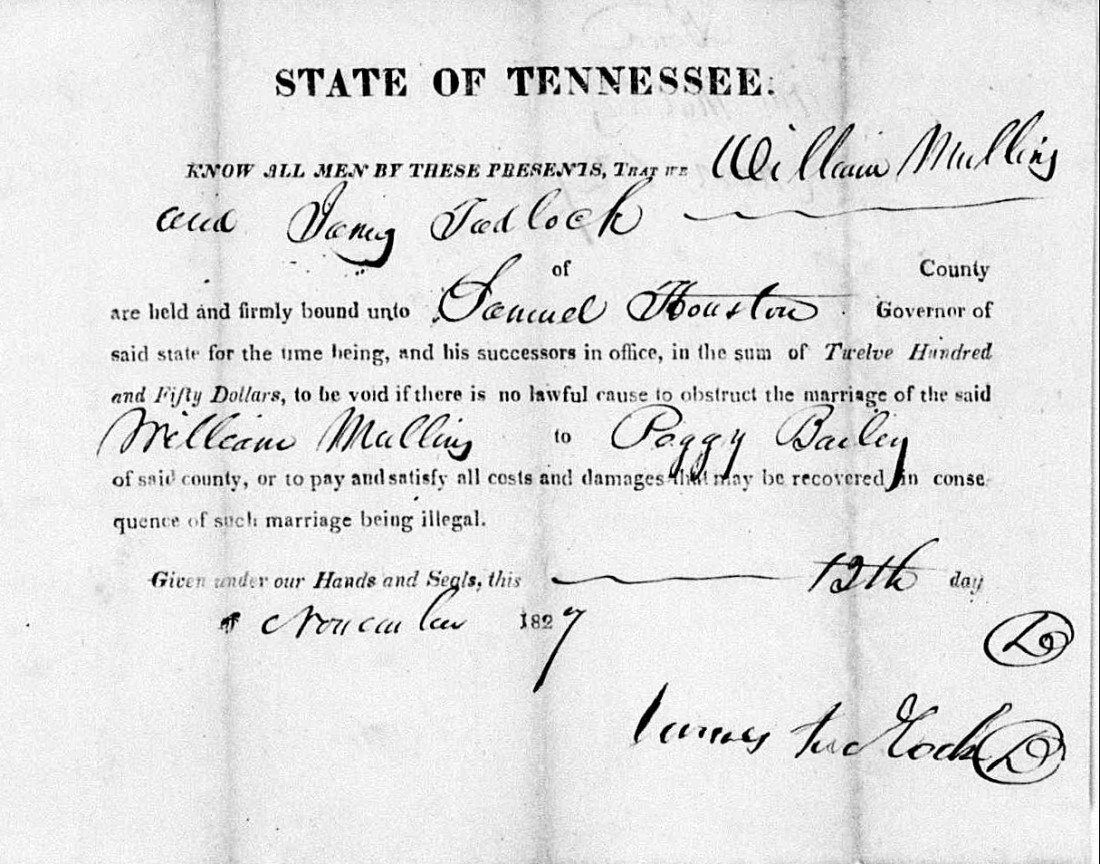 STATE OF TENNESSEE.
KNOW ALL MEN BY THESE PRESENTS, THAT WE William Mullins
and James Tadlock
of County
are held and firmly bound unto Samuel Houston Governor of
said state for the time being, and his successors in office, in the sum of Twelve Hundred
and Fifty Dollars, to be void if there is no lawful cause to obstruct the marriage of the said
William Mullins to Peggy Bailey
of said county, or to pay and satisfy all costs and damages that may be recovered in conse
quence of such marriage being illegal.
Given under our Hands and Seals, this 12th day
of November 1827
James Tadlock